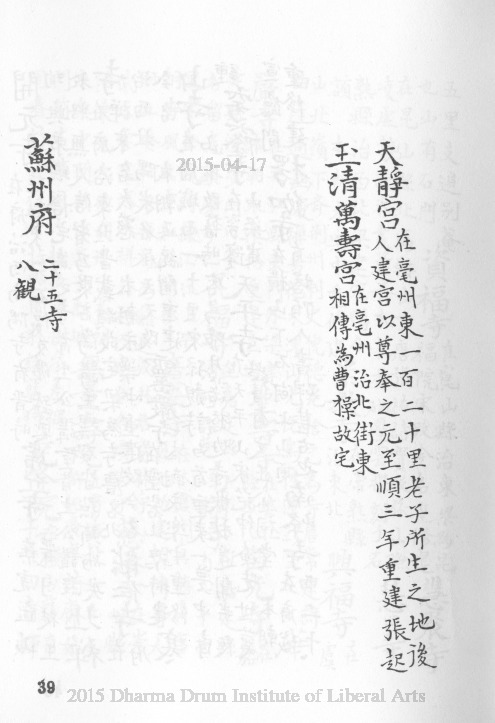 天靜宮 在亳州東一百二十里老子所生之地後
人建宮以尊奉之元至順三年重建張起
玉清萬壽宮 在亳州治北街東
相傳為曹操故宅
蘇州府 二十五寺
八觀
2015-04-17
39
2015 Dharma Drum Institute of Liberal Arts